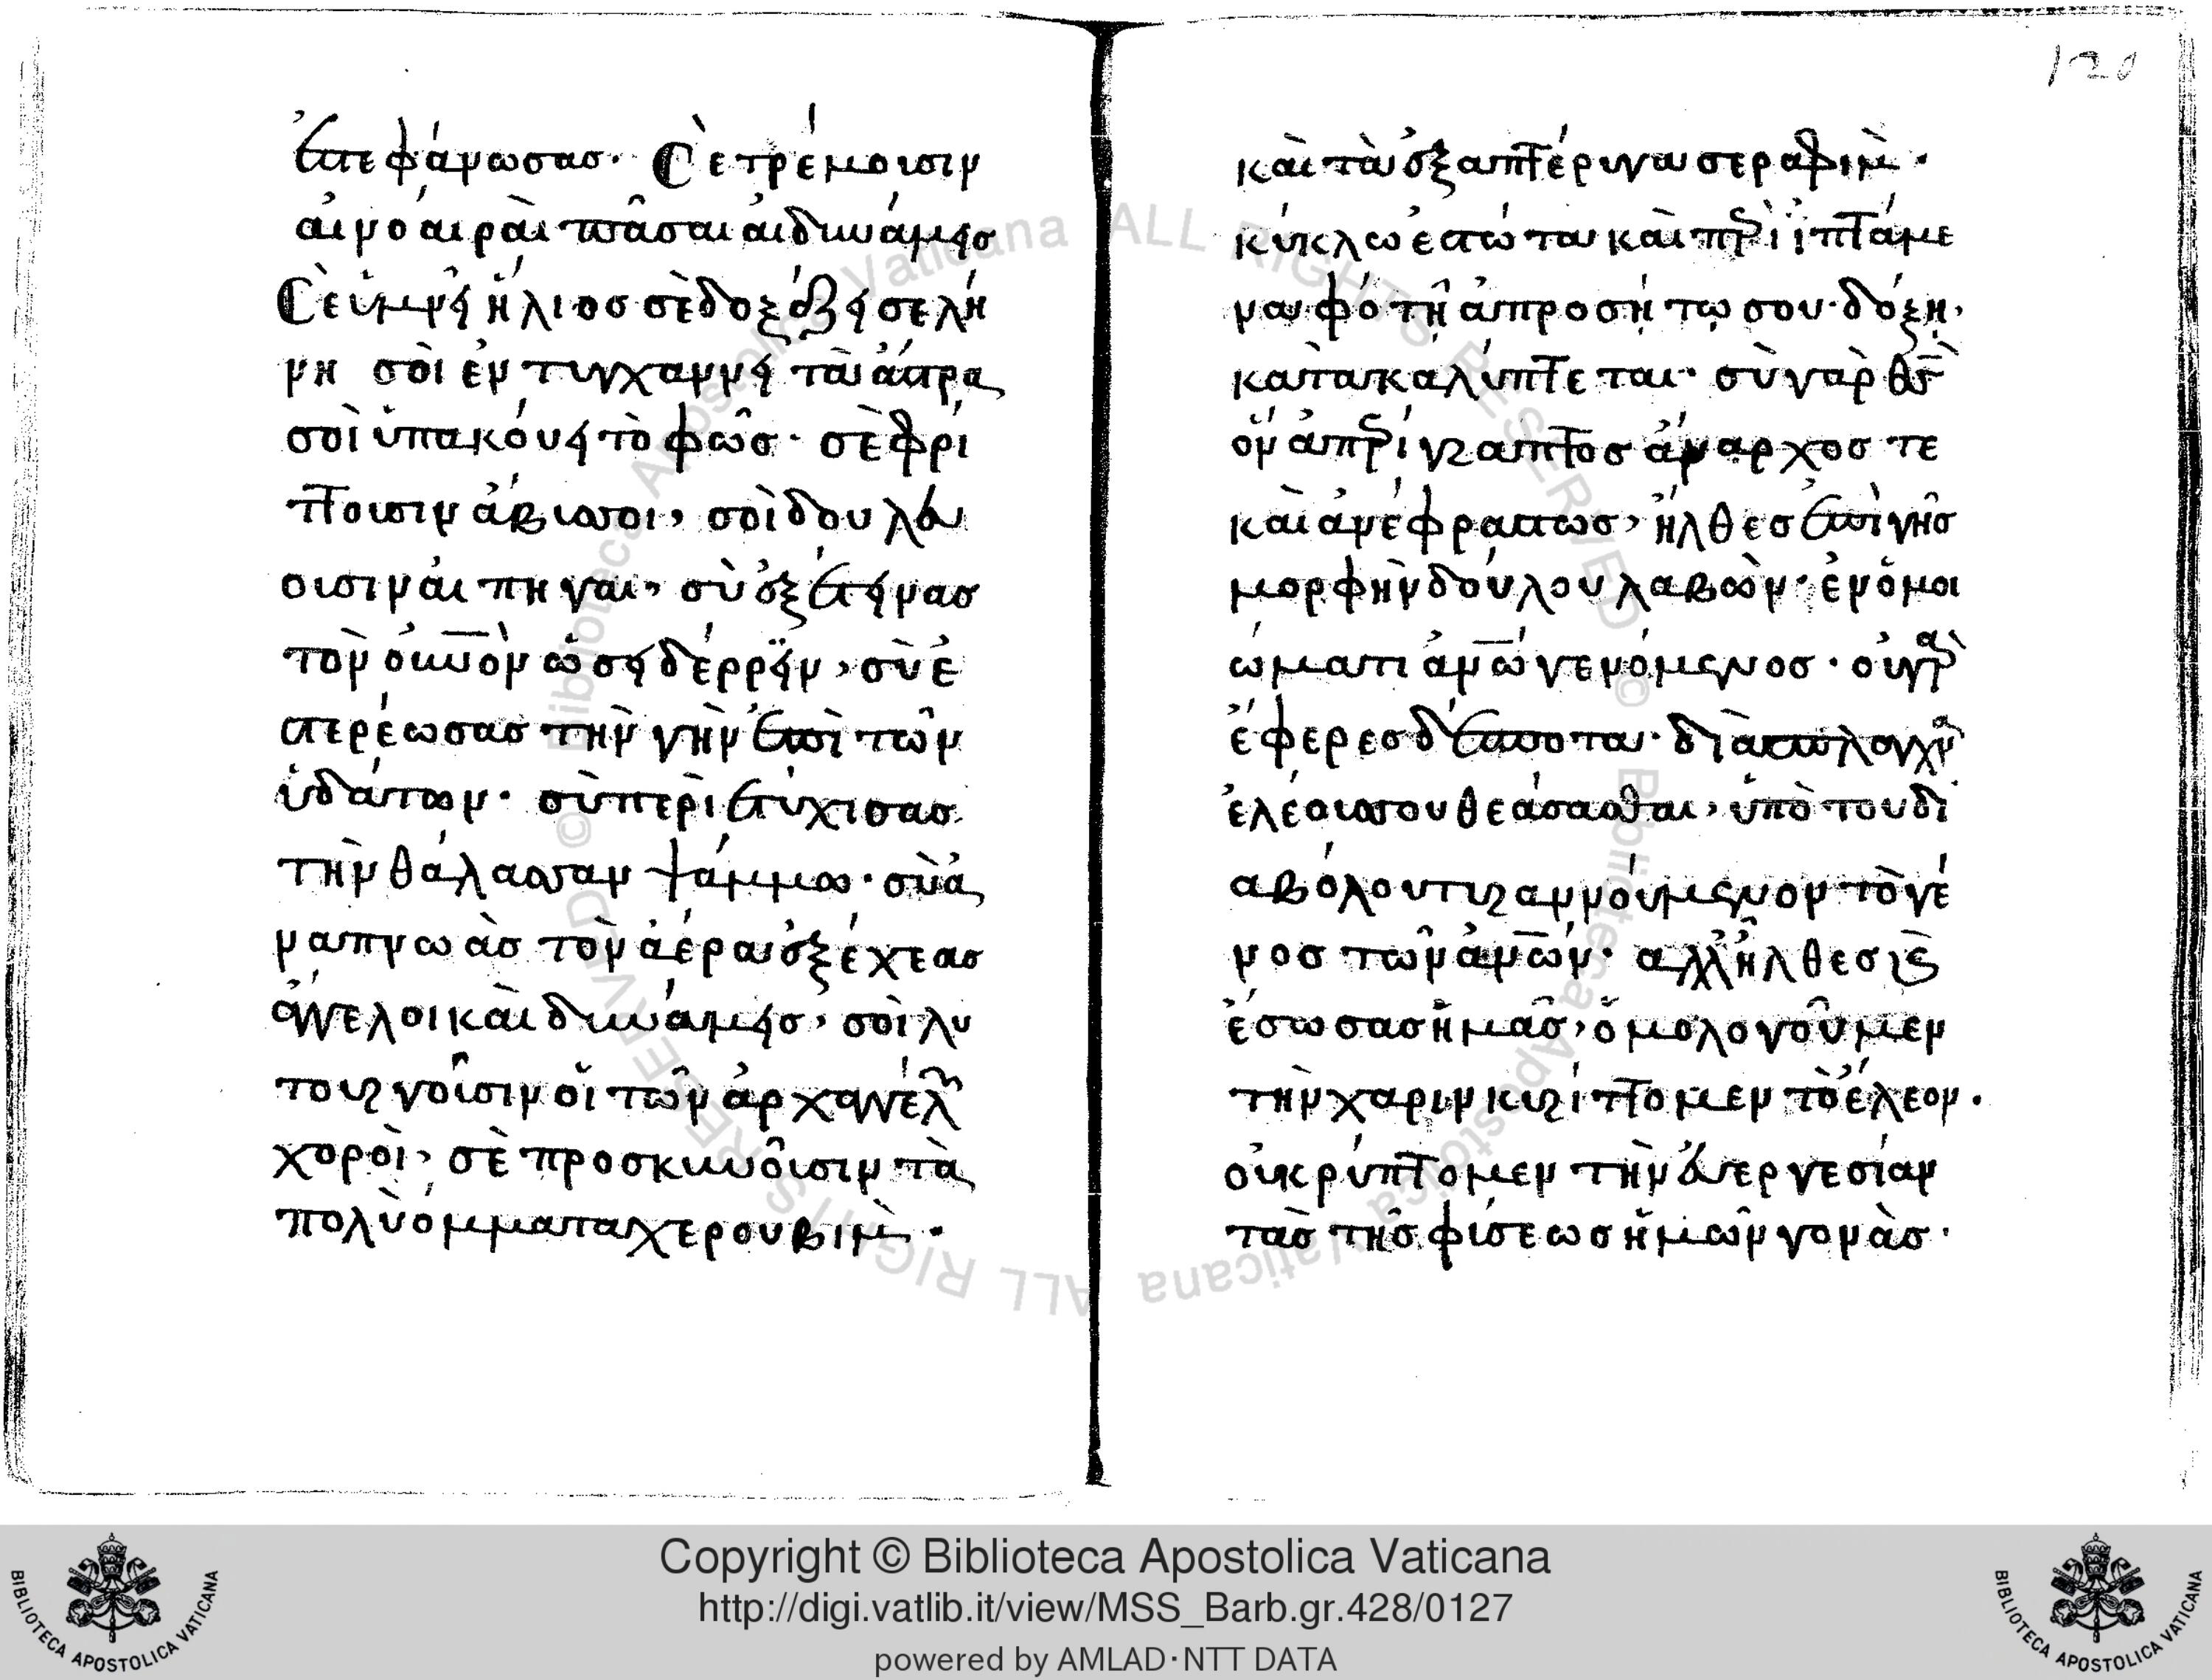 ἐστεφάνωσας· Σὲ τρέμουσιν
αἱ νοαιραὶ πᾶσαι αἱ δυνάμεις
Σὲ ὑμνεῖ ἥλιος σὲ δοξάζει σελή
νη σοὶ ἐντυγχαννει τὰ ἄστρα
σοὶ ὑπακούει τὸ φῶς· σὲ φρί
πτουσιν ἄβυσσοι, σοὶ δουλεύ
ουσιν αἱ πηγαι, σὺ ἐξέτεινας
τὸν οὐνὸν ὡσεὶ δέρρειν, σὺ ἐ
στερέωσας τὴν γὴν ἐπὶ τῶν
ὑδάτων· σὺ περὶετύχισας
τὴν θάλασσαν ψάμμω· σὺ ἀ
ναπνωὰς τὸν ἀέρα ἐξέχεας
ἄγγελοι καὶ δυνάμεις, σοὶ λυ
τουργοῦσιν οἱ τῶν ἀρχαγγέλ
χοροὶ, σὲ προσκυνοῦσιν τὰ
πολὺόμματα χερουβιμ·
καὶ τὰ ἐξαπτέρυγα σεραφιμ·
κύκλω ἐστώτα καὶ περὶ ἱπτάμε
να φό τῆ ἀπροσήτω σου δόξη,
κατακαλύπτεται· σὺ γὰρ θς
ὅν ἀπερίγραπτος ἄναρχος τε
καὶ ἀνέφραστως, ἦλθες ἐπὶ γῆς
μορφὴν δούλου λαβὼν· ἐν ὅμοι
ώματι ἀνώ γενόμενος· οὐ γὰρ
ἔφερες δέσποτα· διὰ σπλαγχν
ἐλέους σου θεάσασθαι, ὑπὸ του δι
αβόλου τυραννούμενον τὸ γέ
νος τῶν ἀνών· αλλ ἦλθες καὶ
ἔσωσας ἡμᾶς, ὁμολογοῦμεν
τὴν χαριν κυρίπτομεν τὸ ἔλεον·
οὐ κρύπτομεν τὴν ἐυεργεσίαν
τὰς τῆς φίσεως ἡμῶν γονὰς·
120
Copyright © Biblioteca Apostolica Vaticana
http://digi.vatlib.it/view/MSS_Barb.gr.428/0127
powered by AMLAD·NTT DATA
BIBLIOTECA APOSTOLICA VATICANA
BIBLIOTECA APOSTOLICA VATICANA
© Biblioteca Apostolica Vaticana ALL RIGHTS RESERVED © Biblioteca Apostolica Vaticana ALL RIGHTS RESERVED